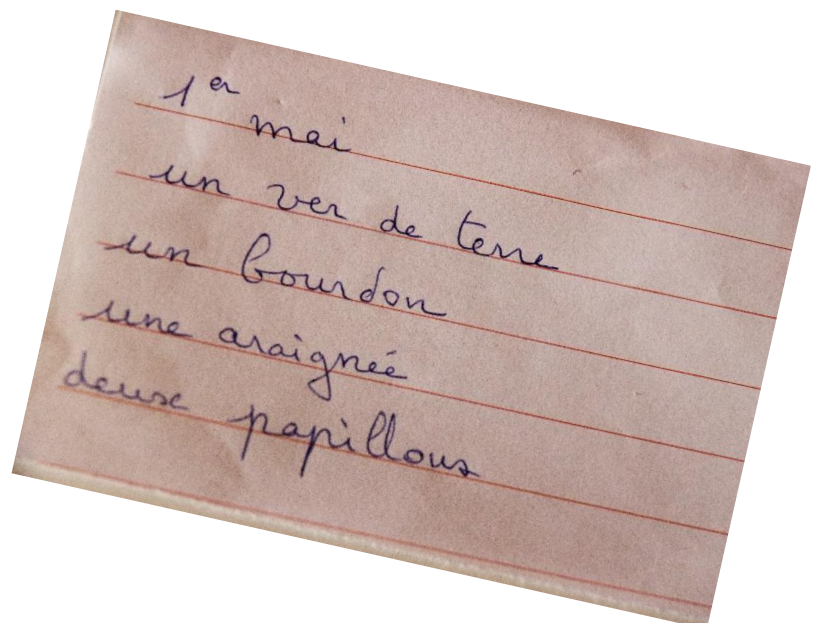 1er mai
un ver de terre
un bourdon
une araignée
deux papillons